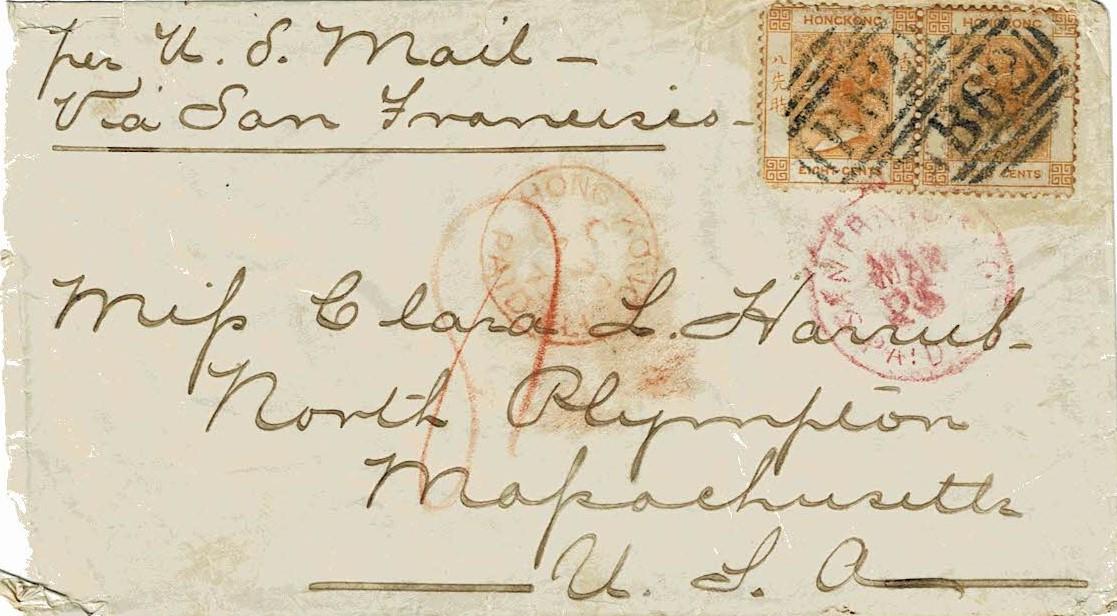 per U. S. Mail -
Via San Francisco -
HONGKONG HONGKONG
八先時
B62 B62
EIGHT CENTS CENTS
HONG KONG
PAID
SAN FRANCISCO
MAR
PAID
8
Miss Clara L. Harrub -
North Plympton
Massachusetts
U. S. A